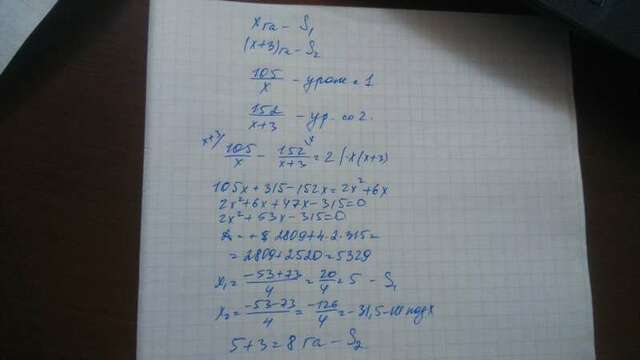 x га - S₁
(x+3) га - S₂
105/x - урож. 1
152/x+3 - ур. со 2.
x+3/ 105/x - 152/x+3 /x = 2 | · x(x+3)
105x+315-152x=2x²+6x
2x²+6x+47x-315=0
2x²+53x-315=0
2809+4·2·315=
=2809+2520=5329
x₁=-53+73/4=20/4=5 - S₁
x₂=-53-73/4=-126/4=-31,5-не подх
5+3=8 га-S₂